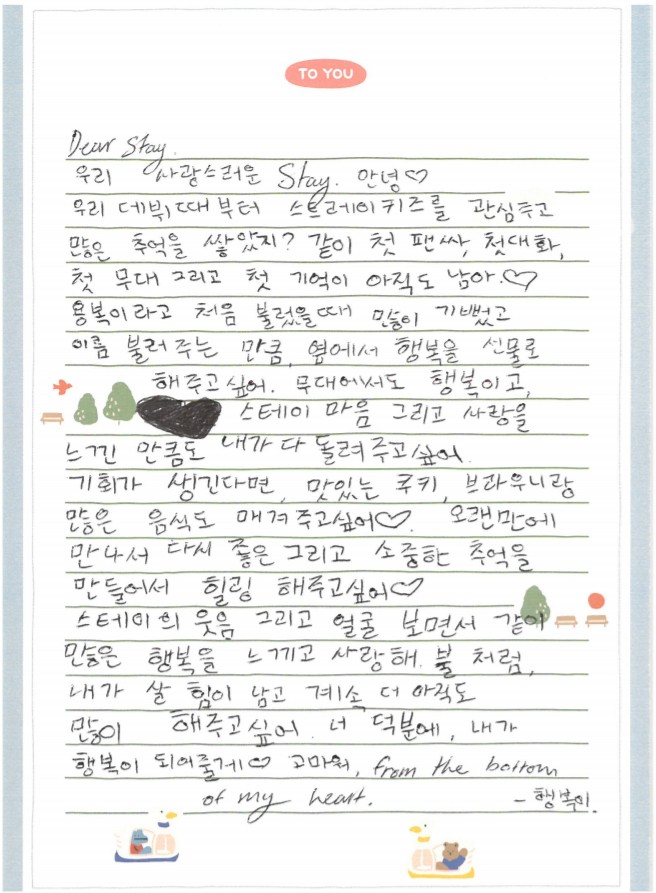 TO YOU
Dear Stay.
우리 사랑스러운 Stay. 안녕♡
우리 데뷔때부터 스트레이키즈를 관심주고
많은 추억을 쌓았지? 같이 첫 팬싸, 첫대화,
첫 무대 그리고 첫 기억이 아직도 남아.♡
용복이라고 처음 불렀을때 많이 기뻤고
이름 불러주는 만큼, 옆에서 행복을 선물로
해주고싶어. 무대에서도 행복이고,
스테이 마음 그리고 사랑을
느낀 만큼도 내가 다 돌려주고싶어.
기회가 생긴다면, 맛있는 쿠키, 브라우니랑
많은 음식도 매겨주고싶어♡. 오랜만에
만나서 다시 좋은 그리고 소중한 추억을
만들어서 힐링 해주고싶어♡
스테이의 웃음 그리고 얼굴 보면서 같이
많은 행복을 느끼고 사랑해. 불 처럼,
내가 살 힘이 남고 계속 더 아직도
많이 해주고싶어. 너 덕분에, 내가
행복이 되어줄게♡ 고마워, from the bottom
of my heart. - 행복이.